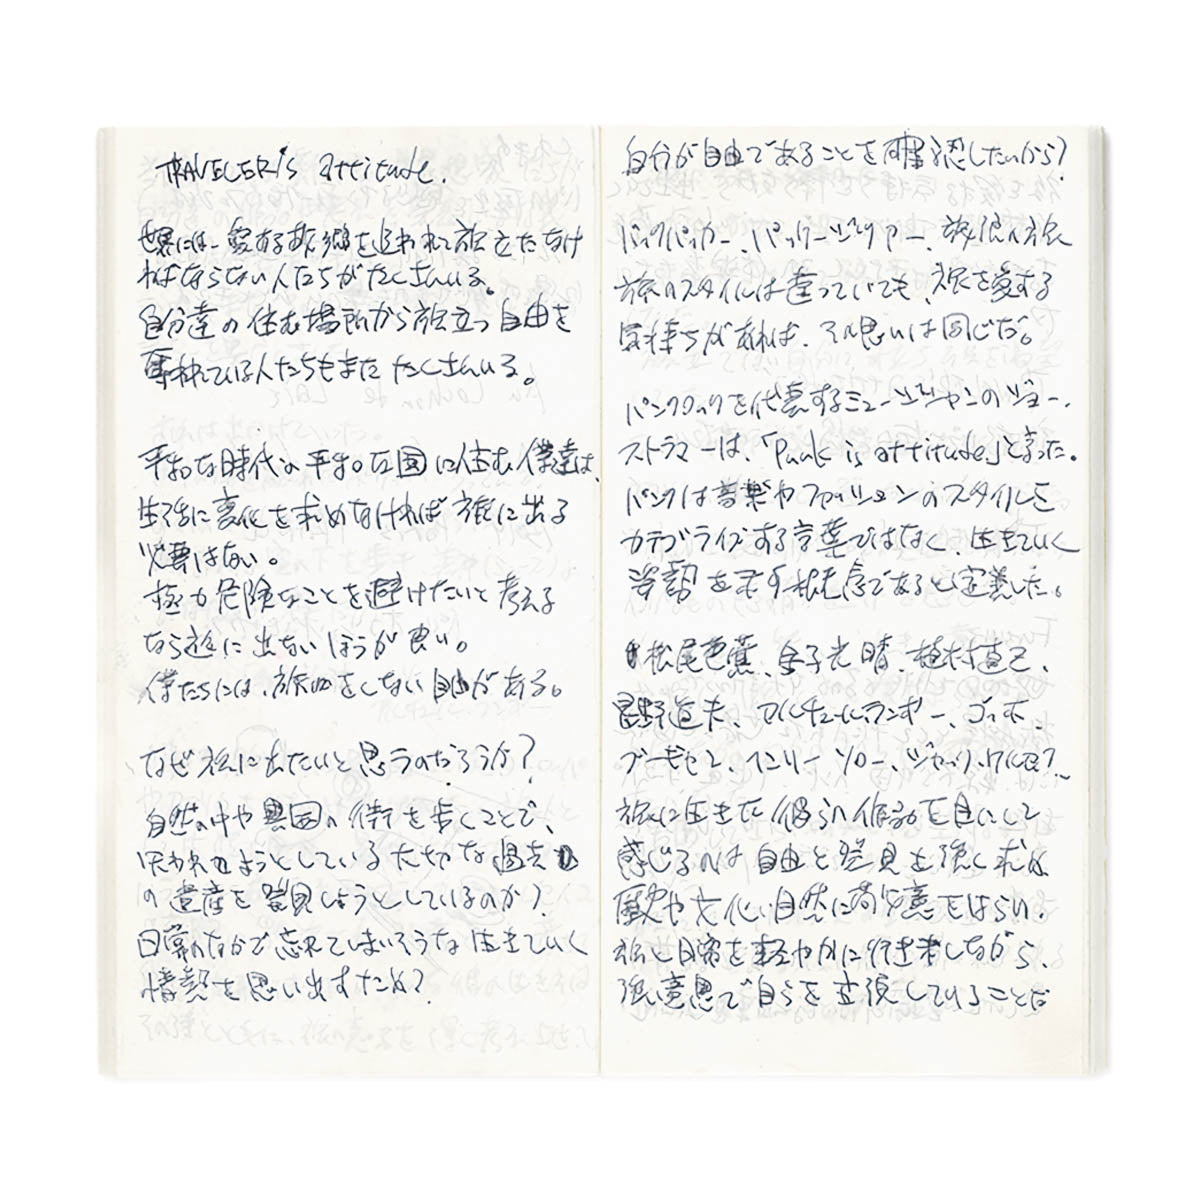 TRAVELER's attitude.
世界には、愛する故郷を追われて旅立たなけ
ればならない人たちがたくさんいる。
自分達の住む場所から旅立つ自由を
奪われている人たちもまた たくさんいる。
平和な時代の平和な国に住む僕達は、
生活に変化を求めなければ旅に出る
必要はない。
極力危険なことを避けたいと考える
なら旅に出ないほうが良い。
僕たちには、旅をしない自由がある。
なぜ旅に出たいと思うのだろうか?
自然の中や異国の街を歩くことで、
失われせようとしている大切な過去
の遺産を発見しようとしているのか?
日常のなかで忘れてしまいそうな生きていく
情熱を思い出すため?
自分が自由であることを確認したいから?
バックパッカー、パッケージツアー、放浪の旅
旅のスタイルは違っていても、旅を愛する
気持ちがあれば、その思いは同じだ。
パンクロックを代表するミュージシャンのジョー・
ストラマーは、「Punk is attitude」と言った。
パンクは音楽やファッションのスタイルを
カテゴライズする言葉ではなく、生きていく
姿勢を示す概念であると定義した。
松尾芭蕉、金子光晴、植村直己、
星野道夫、アルチュール・ランボー、ゴッホ、
ゴーギャン、ヘンリー・ソロー、ジャック・ケルアック
旅に生きた彼らの作品を目にして
感じるのは自由と発見を強く求め
歴史や文化、自然に敬意をはらい、
旅と日常を軽やかに行き来しながら、
強い意思で自らを立脚していることだ